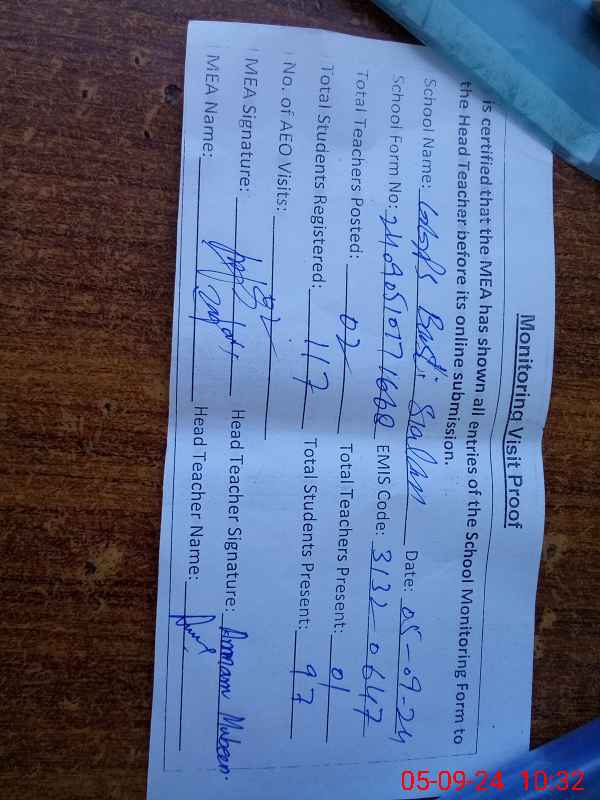 Monitoring Visit Proof
is certified that the MEA has shown all entries of the School Monitoring Form to
the Head Teacher before its online submission.
School Name: GGPS Basti Sialan Date: 05-09-24
School Form No: EMIS Code: 31320647
Total Teachers Posted: 02 Total Teachers Present: 01
Total Students Registered: 117 Total Students Present: 97
No. of AEO Visits: 02
MEA Signature: Head Teacher Signature: Mubeen
MEA Name: Head Teacher Name:
05-09-24 10:32